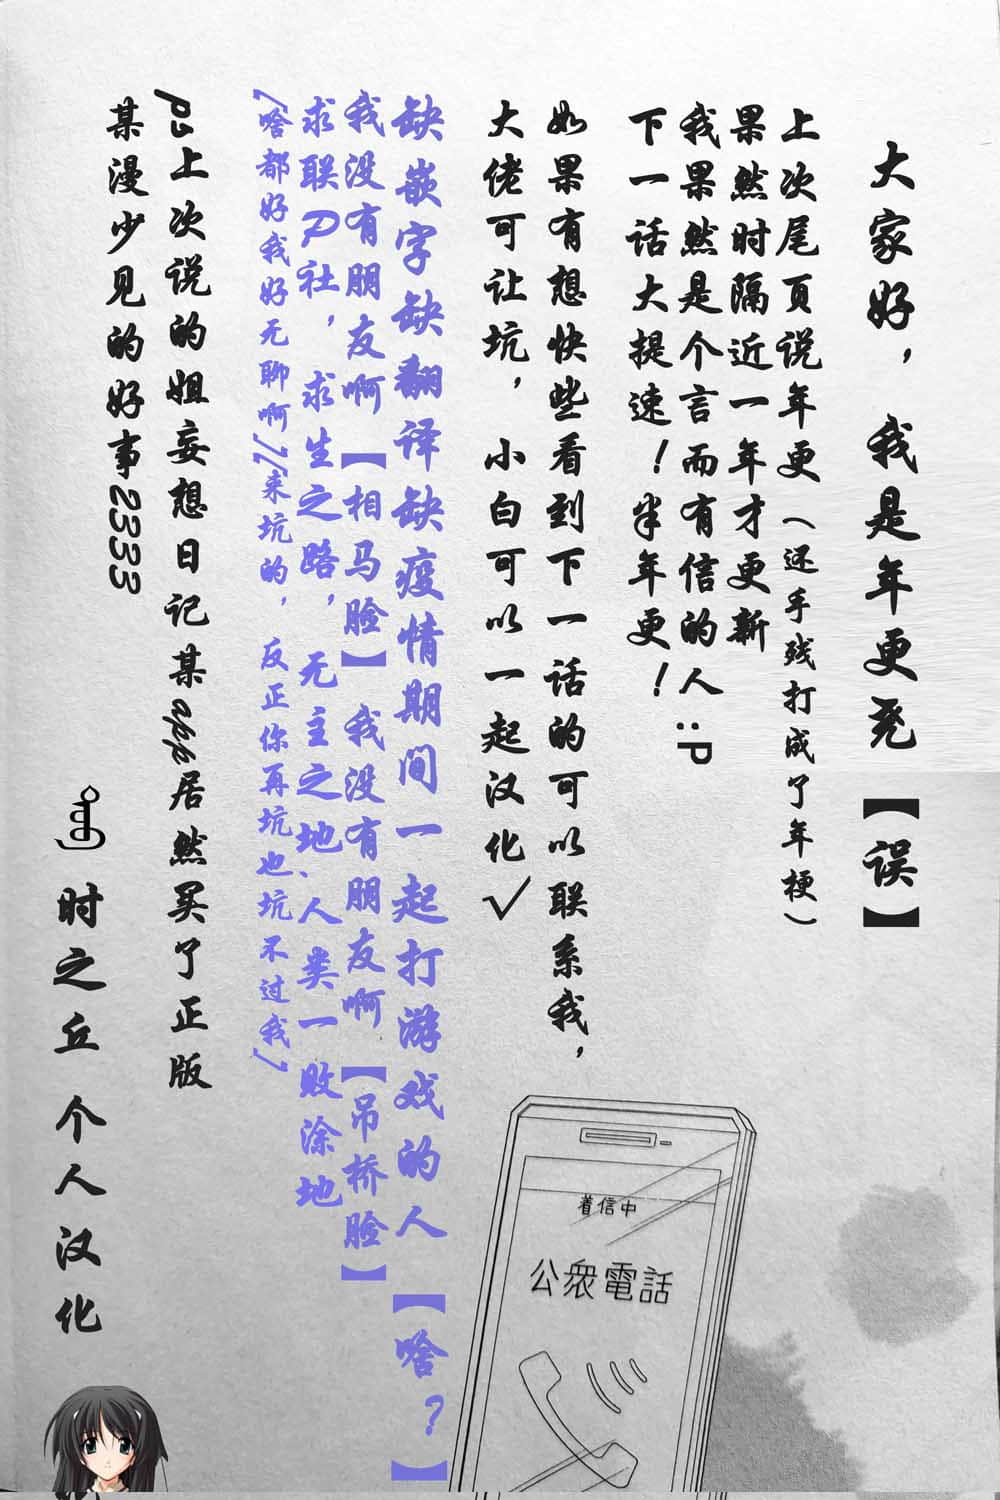 大家好，我是年更尧【误】
上次尾页说年更（还手残打成了年梗）
果然时隔近一年才更新
我果然是个言而有信的人:P
下一话大提速！半年更！
如果有想快些看到下一话的可以联系我，
大佬可让坑，小白可以一起汉化✓
缺嵌字缺翻译缺疫情期间一起打游戏的人【啥？】
我没有朋友啊【相马脸】我没有朋友啊【吊桥脸】
求联P社，求生之路，无主之地、人类一败涂地
[啥都好我好无聊啊][来坑的，反正你再坑也坑不过我]
ps上次说的姐妄想日记某app居然买了正版
某漫少见的好事2333
时之丘个人汉化
着信中
公衆電話